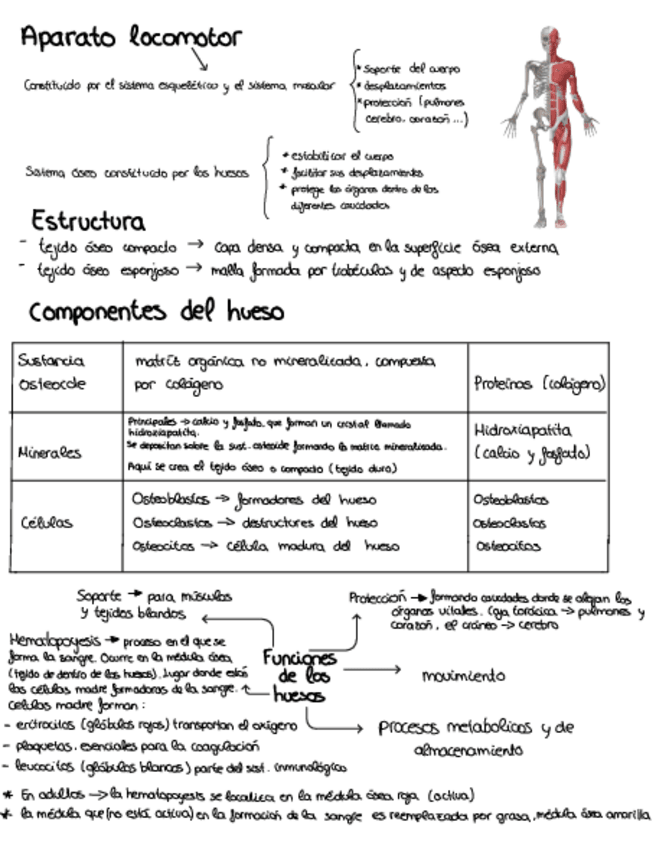 Aparato locomotor
Constituido por el sistema esquelético y el sistema muscular
* Soporte del cuerpo
* desplazamientos
* protección (pulmones
cerebro, corazón ...)
Sistema óseo constituido por los huesos
* estabilizar el cuerpo
* facilitar sus desplazamientos
* protege los órganos dentro de las
diferentes cavidades
Estructura
- tejido óseo compacto → capa densa y compacta en la superficie ósea externa
- tejido óseo esponjoso → malla formada por trabéculas y de aspecto esponjoso
Componentes del hueso
Sustancia
osteoide
matriz orgánica no mineralizada, compuesta
por colágeno
Proteínas (colágeno)
Minerales
Principales → calcio y fosfato, que forman un cristal llamado
hidroxiapatita.
Se depositan sobre la sust. osteoide formando la matriz mineralizada.
Aquí se crea el tejido óseo o compacto (tejido duro)
Hidroxiapatita
(calcio y fosfato)
Células
Osteoblastos → formadores del hueso
Osteoclastos → destructores del hueso
Osteocitos → célula madura del hueso
Osteoblastos
osteoclastos
Osteocitos
Soporte → para músculos
y tejidos blandos
Protección → formando cavidades donde se alojan los
órganos vitales. Caja torácica → pulmones y
corazón, el cráneo → cerebro
Hematopoyesis → proceso en el que se
forma la sangre. Ocurre en la médula ósea
(tejido de dentro de los huesos). Lugar donde están
las células madre formadoras de la sangre.
Células madre forman:
- eritrocitos (glóbulos rojos) transportan el oxígeno
- plaquetas, esenciales para la coagulación
- leucocitos (glóbulos blancos) parte del sist. inmunológico
Funciones
de los
huesos
movimiento
procesos metabolicos y de
almacenamiento
* En adultos → la hematopoyesis se localiza en la médula ósea roja (activa)
* la médula que (no está activa) en la formación de la sangre es reemplazada por grasa, médula ósea amarilla